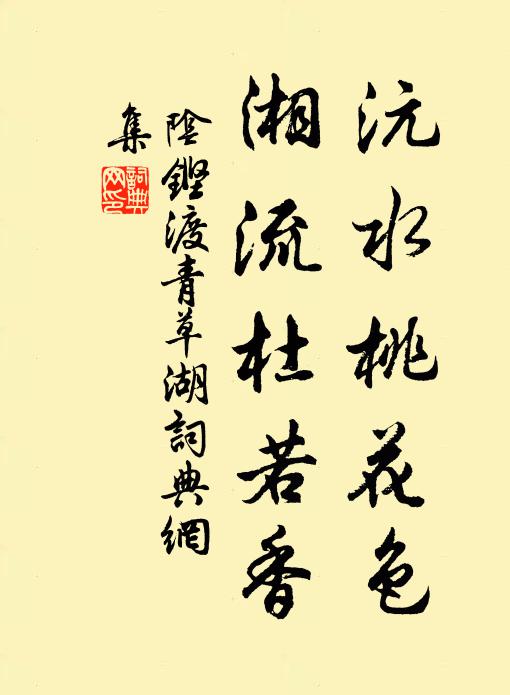 沅水桃花色
湘流杜若香
陰鏗渡青草湖詞典網
集
詞典网印